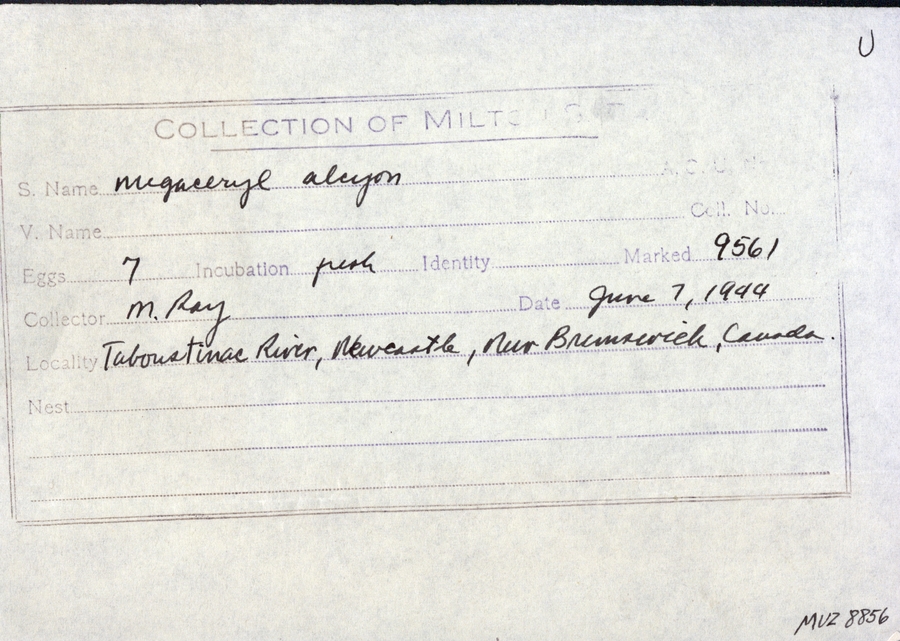 U
COLLECTION OF MILTO
S. Name megaceryl alcyon A. O. U. No.
V. Name Coll. No.
Eggs 7 Incubation fresh Identity Marked 9561
Collector M. Ray Date June 7, 1944
Locality Taboustinac River, Newcastle, New Brunswick, Canada.
Nest
MVZ 8856